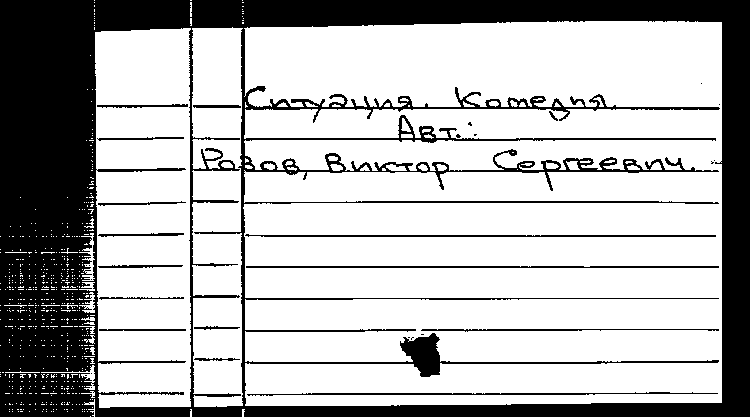 Ситуация. Комедия.
Авт.:
Розов, Виктор Сергеевич.